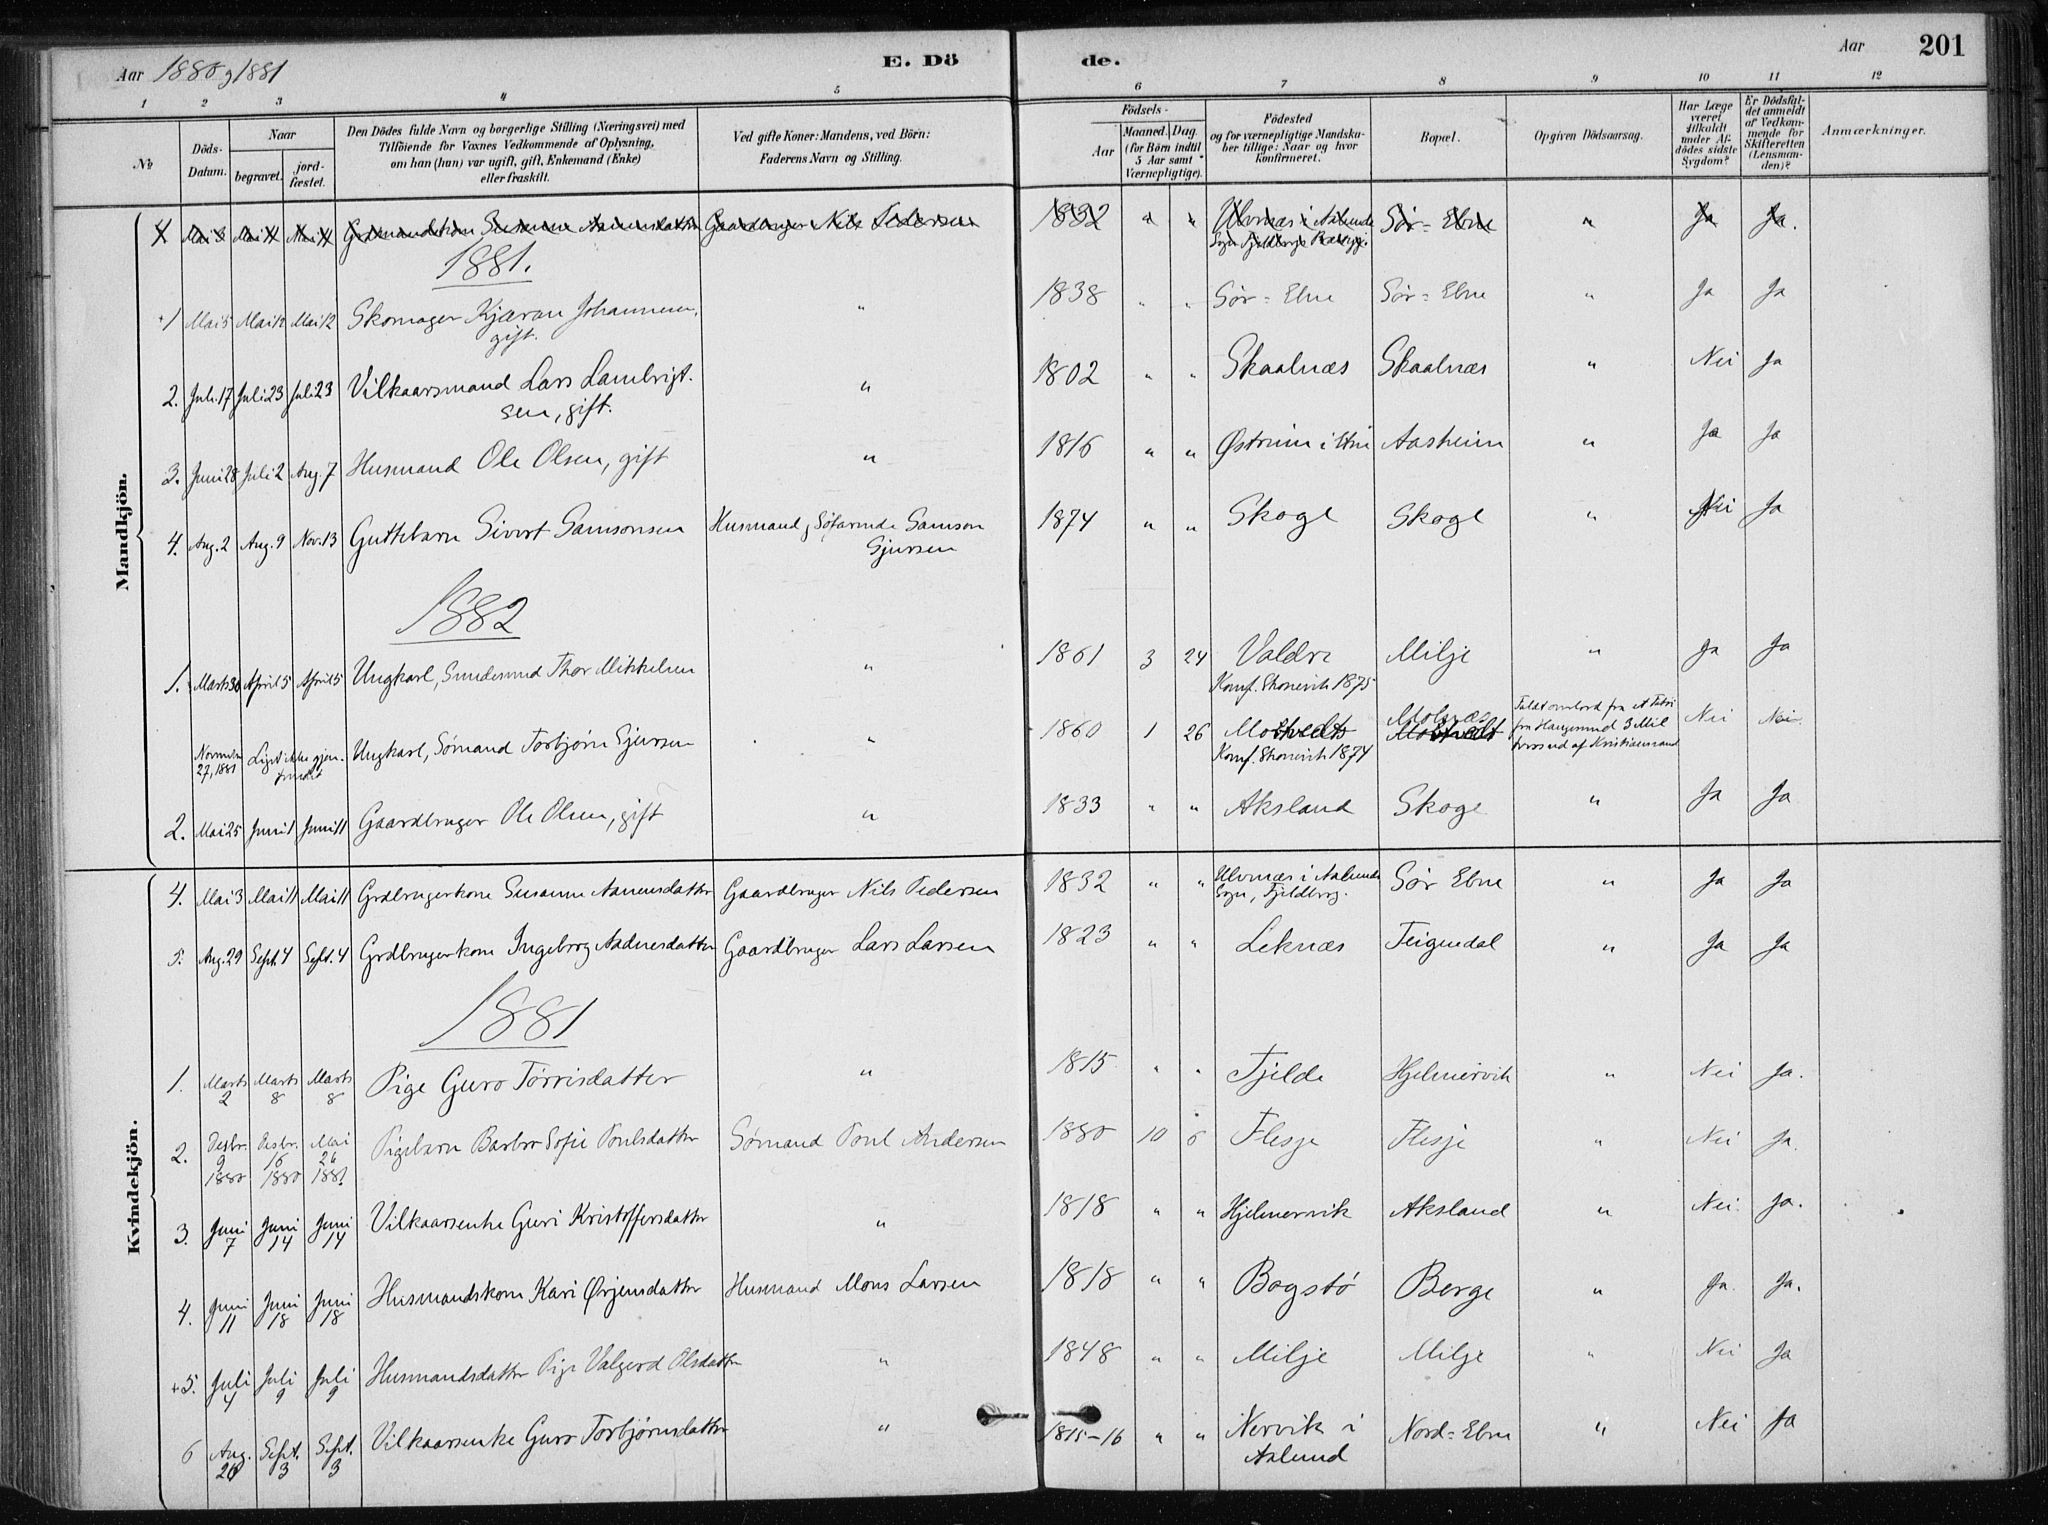 Aar 1880 og 1881 E. Dö de. Aar 201
1 2 3 4 5 6 7 8 9 10 11 12
No
Döds-Datum.
Naar
begravet.
jord-fæstet.
Den Dödes fulde Navn og borgerlige Stilling (Næringsvei) med
Tilföiende for Voxnes Vedkommende af Oplysning,
om han (hun) var ugift, gift, Enkemand (Enke)
eller fraskilt.
Ved gifte Koner: Mandens, ved Börn:
Faderens Navn og Stilling.
Födsels-
Aar
Maaned. Dag.
(for Börn indtil
5 Aar samt
Værnepligtige).
Födested
og for værnepligtige Mandska-
ber tillige: Naar og hvor
Konfirmeret.
Bopæl.
Opgiven Dödsaarsag.
Har Læge
været
tilkaldt
under Af-
dödes sidste
Sygdom?
Er Dödsfal-
det anmeldt
af Vedkom-
mende for
Skifteretten
(Lensman-
den)?
Anmærkninger.
Mandkjön.
4 Mai 3 Mai 11 Mai 11 Susanne Aanensdatter Gaardbruger Nils Pedersen 1832 " " Ulvnæs i Aalunds Sør-Ebne " Ja Ja.
Sogn Fjeldbergs
1881.
1 Mai 5 Mai 12 Mai 12 Skomager Kjæran Johannesen, " 1838 " " Sør-Ebne Sør-Ebne " Ja Ja
gift.
2. Juli 17 Juli 23 Juli 23 Vilkaarsmand Lars Lambrigt- " 1802 " " Skaalnæs Skaalnæs " Nei Ja
sen, gift.
3. Juni 28 Juli 2 Aug. 7 Husmand Ole Olsen, gift " 1816 " " Østrim i Etne Aasheim " Ja Ja
4. Aug. 2 Aug. 9 Nov. 13 Guttebarn Sivert Samsonsen Husmand, Søfarende Samson 1874 " " Skoge Skoge " Nei Ja
Sjursen
1882
1. Marts 30 April 5 April 5 Ungkarl, Sundesund Thor Mikkelsen " 1861 3 24 Valdre Milje " Ja Ja
Konf. Skonevik 1875
November 27, 1881 Liget ikke gjen-fundet Ungkarl, Sømand Torbjørn Sjursen " 1860 1 26 Mostvedt Molnæs Mostvedt Faldt overbord fra Nei Nei
Konf. Skonevik 1874 fra Haugesund 3 Mil
af Kristiansand
2. Mai 25 Juni 1 Juni 11 Gaardbruger Ole Olsen, gift " 1833 " " Aksland Skoge " Ja Ja
Kvindekjön.
4. Mai 3 Mai 11 Mai 11 Grdbrugerkone Susanne Aanensdatter Gaardbruger Nils Pedersen 1832 " " Ulvnæs i Aalunds Sør Ebne " Ja Ja
Sogn, Fjeldberg.
5. Aug. 29 Sept. 4 Sept. 4 Grdbrugerkone Ingeborg Andersdatter Gaardbruger Lars Larsen 1823 " " Leknæs Teigendal " Ja Ja
1881
1. Marts 2 Marts 8 Marts 8 Pige Guro Tørrisdatter " 1815 " " Fjelde Hjelmervik " Nei Ja.
2. Desbr. 9 1880 Desbr. 16 1880 Mai 26 1881 Pigebarn Barbro Sofie Poulsdatter Sømand Poul Andersen 1880 10 6 Flesje Flesje " Nei Ja.
3. Juni 7 Juni 14 Juni 14 Vilkaarsenke Guri Kristoffersdatter " 1818 " " Hjelmervik Aksland " Nei Ja.
4. Juni 11 Juni 18 Juni 18 Husmandskone Kari Ørjensdatter Husmand Mons Larsen 1818 " " Bogstø Berge " Ja. Ja.
+5. Juli 4 Juli 9 Juli 9 Husmandsdatter Pige Valgerd Olsdatter " 1848 " " Milje Milje " Nei Ja
6 Aug. 26 Sept. 3 Sept. 3 Vilkaarsenke Guro Torbjørnsdatter " 1815-16 " " Nervik i Nord-Ebne " Nei Ja
Aalund